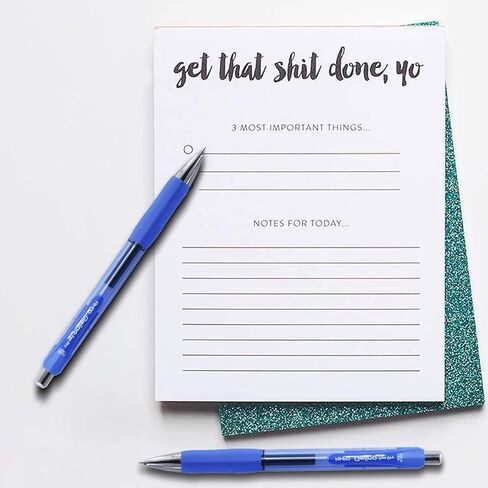 get that shit done, yo
3 MOST IMPORTANT THINGS...
NOTES FOR TODAY...